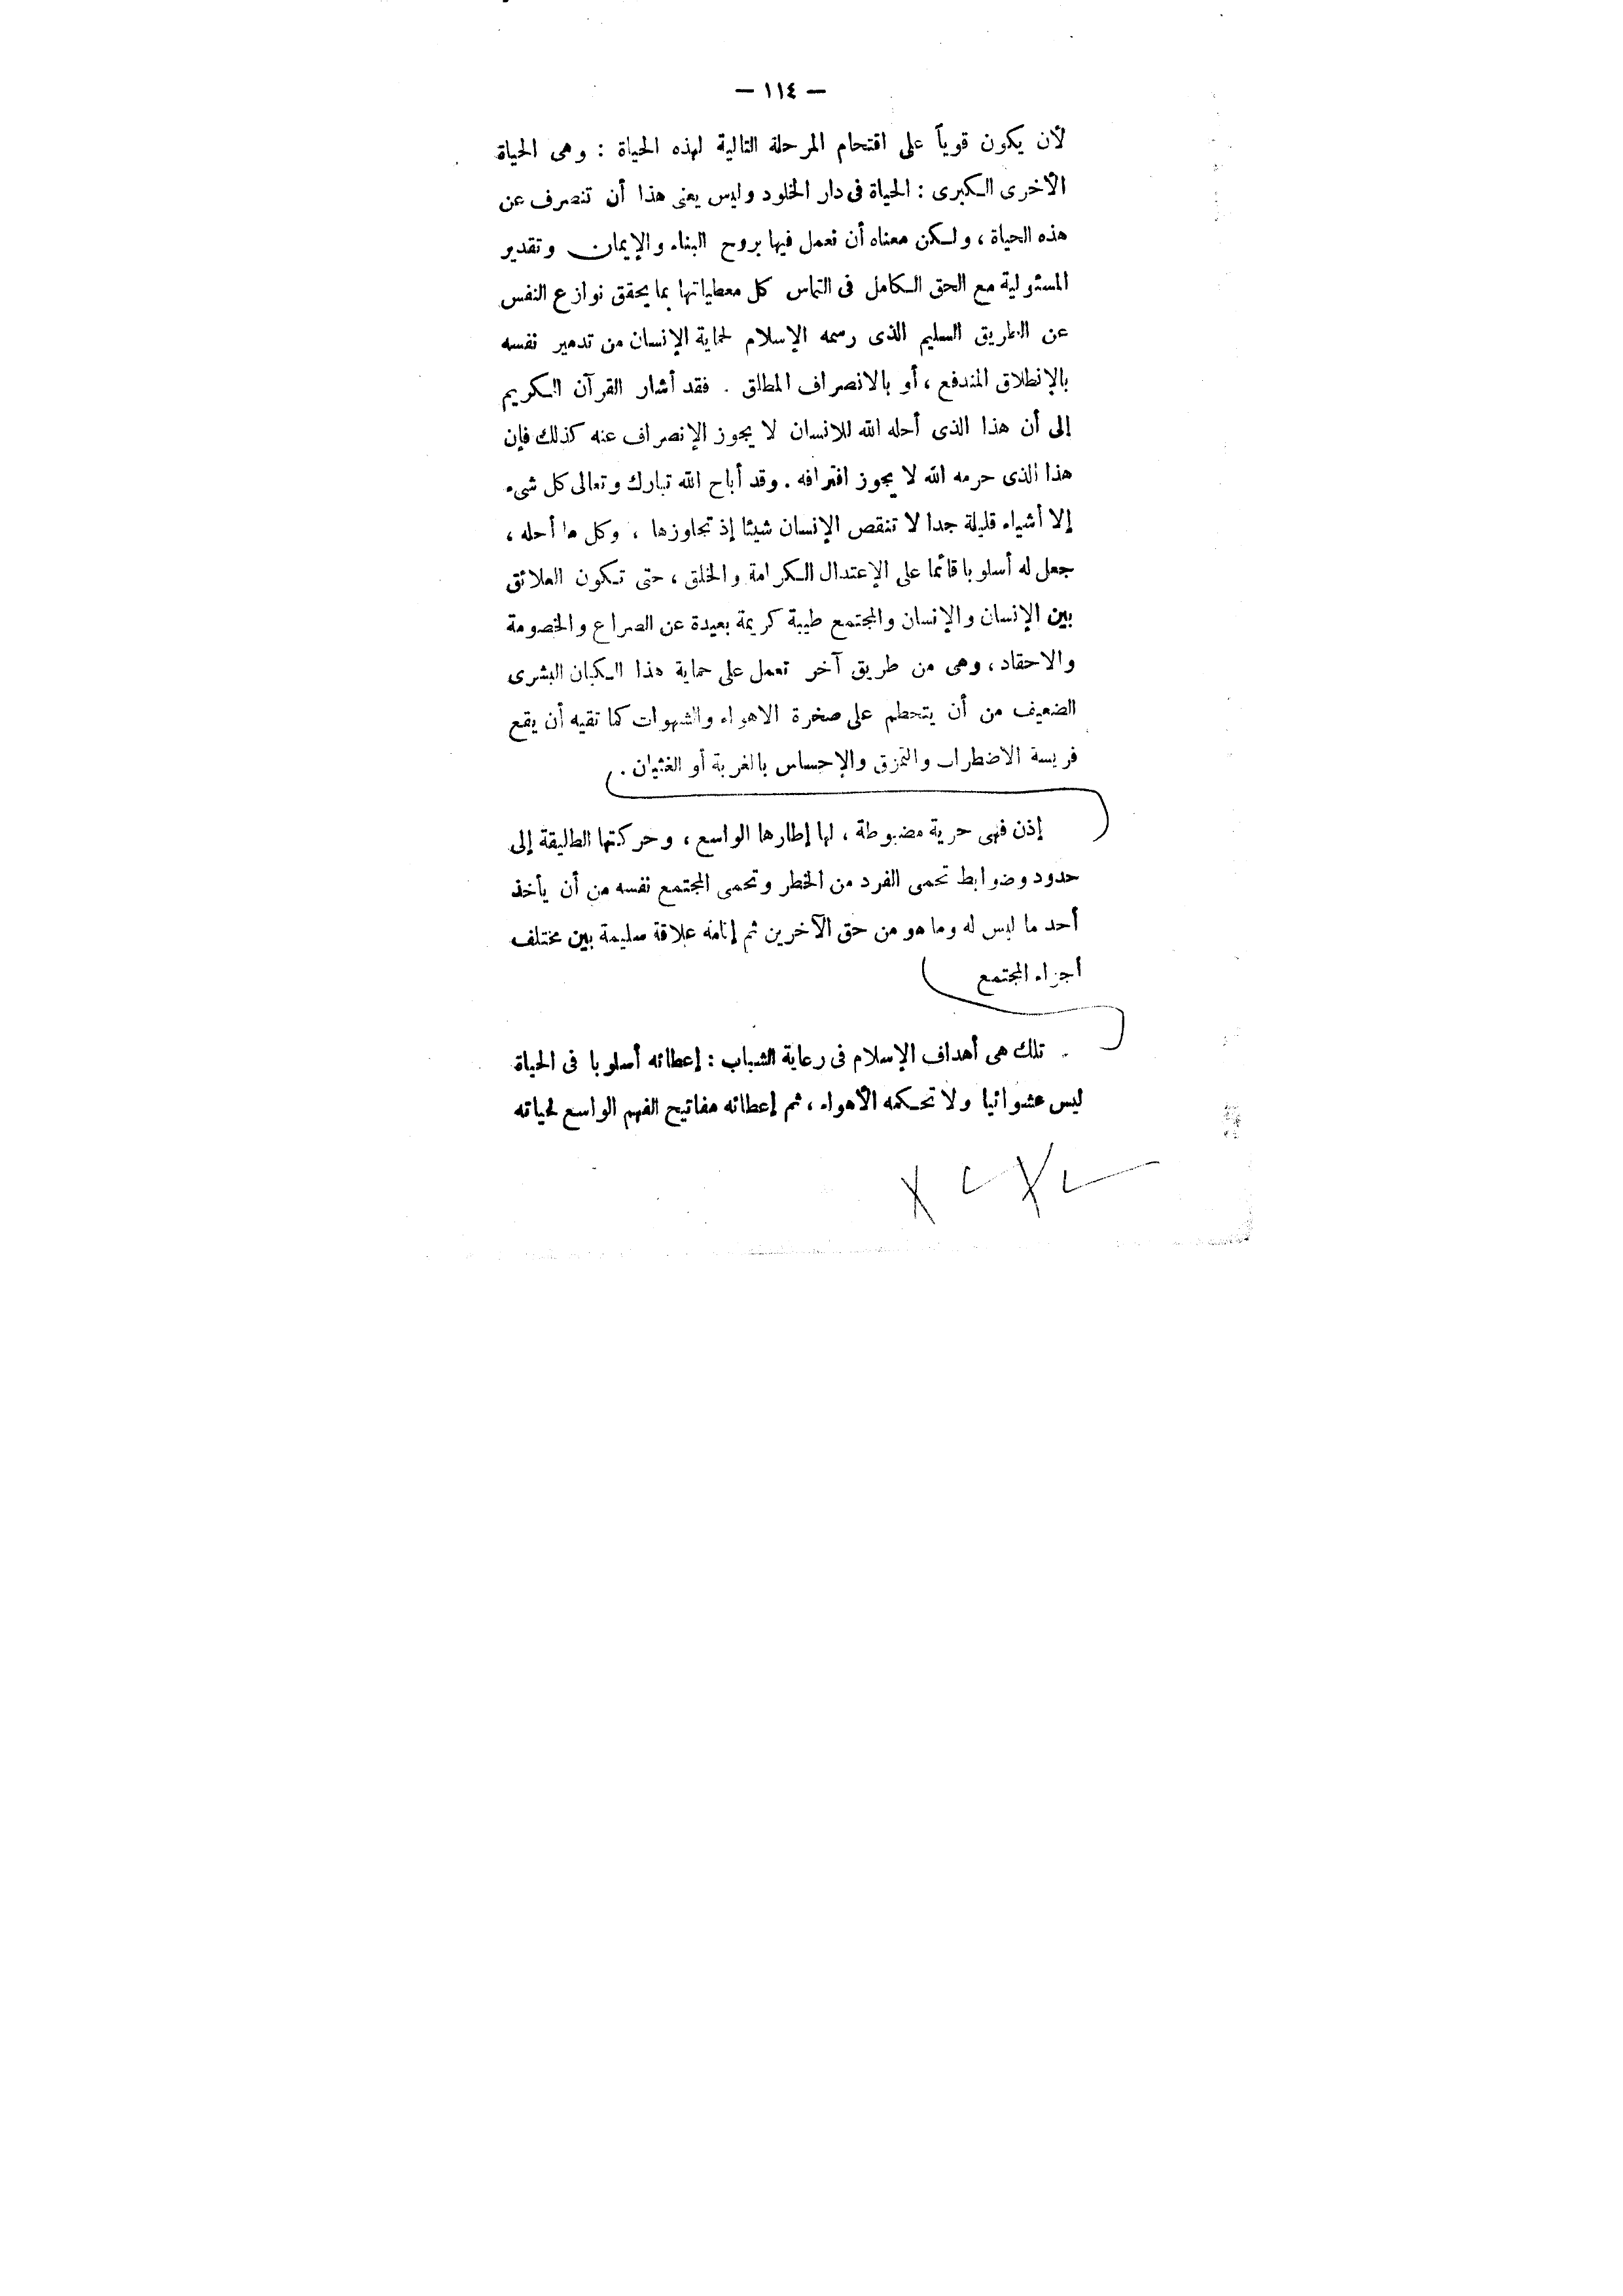 — ١١٤ —
لأن يكون قوياً على اقتحام المرحلة التالية لهذه الحياة : وهى الحياة
الأخرى الكبرى : الحياة فى دار الخلود وليس يعنى هذا أن تنصرف عن
هذه الحياة ، ولكن معناه أن نعمل فيها بروح البناء والإيمان وتقدير
المسئولية مع الحق الكامل فى التماس كل معطياتها بما يحقق نوازع النفس
عن الطريق السليم الذى رسمه الإسلام لحماية الإنسان من تدمير نفسه
بالإنطلاق المندفع ، أو بالانصراف المطلق . فقد أشار القرآن الكريم
إلى أن هذا الذى أحله الله للانسان لا يجوز الإنصراف عنه كذلك فإن
هذا الذى حرمه الله لا يجوز اقترافه . وقد أباح الله تبارك وتعالى كل شىء
إلا أشياء قليلة جدا لا تنقص الإنسان شيئا إذ تجاوزها ، وكل ما أحله ،
جعل له أسلوبا قائما على الإعتدال الكرامة والخلق ، حتى تكون العلائق
بين الإنسان والإنسان والمجتمع طيبة كريمة بعيدة عن الصراع والخصومة
والاحقاد ، وهى من طريق آخر تعمل على حماية هذا الكيان البشرى
الضعيف من أن يتحطم على صخرة الاهواء والشهوات كما تقيه أن يقع
فريسة الاضطراب والتمزق والإحساس بالغربة أو الغثيان .
إذن فهى حرية مضبوطة ، لها إطارها الواسع ، وحركتها الطليقة إلى
حدود وضوابط تحمى الفرد من الخطر وتحمى المجتمع نفسه من أن يأخذ
أحد ما ليس له وما هو من حق الآخرين ثم إقامة علاقة سليمة بين مختلف
أجزاء المجتمع
تلك هى أهداف الإسلام فى رعاية الشباب : إعطائه أسلوبا فى الحياة
ليس عشوائيا ولا تحكمه الأهواء ، ثم إعطائه مفاتيح الفهم الواسع لحياته